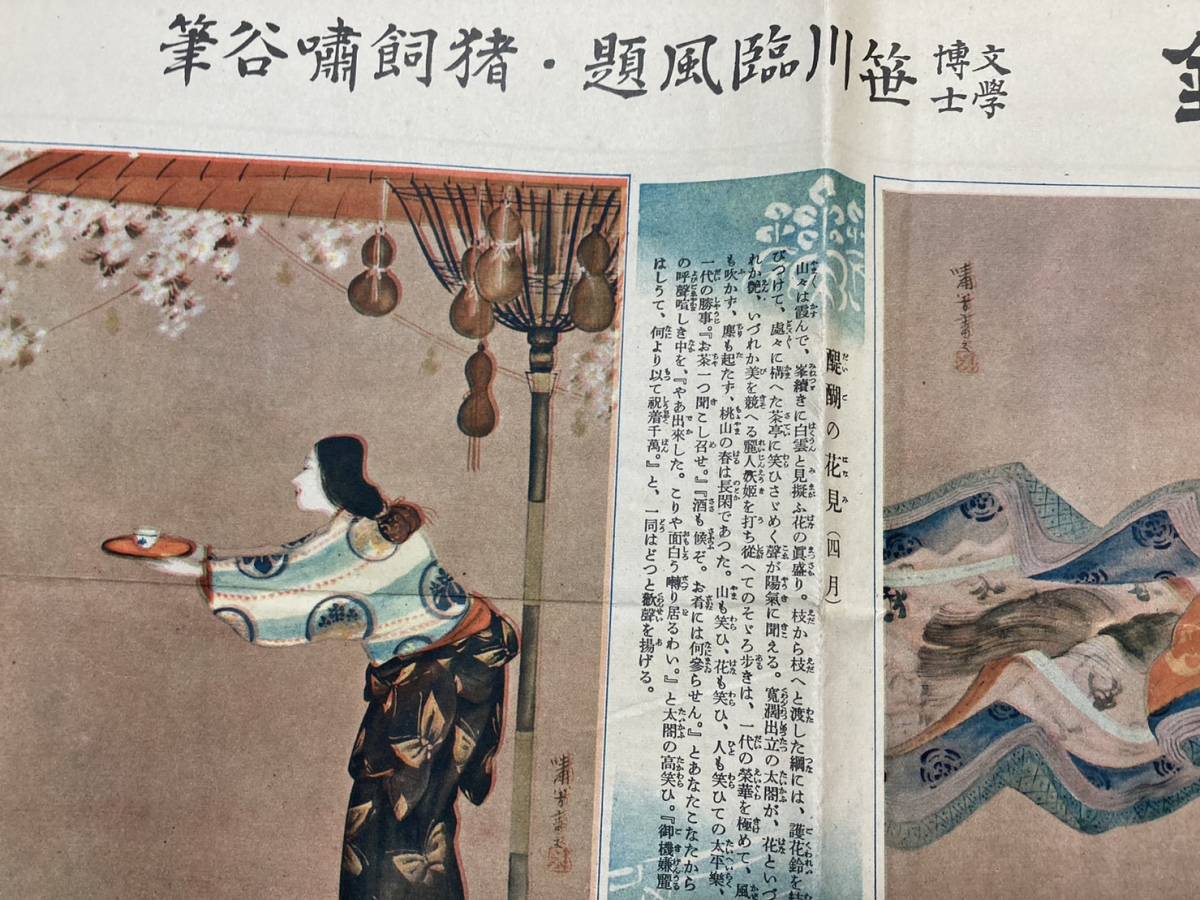 文學
博士
笹川臨風題・猪飼嘯谷筆
醍醐の花見(四月)
山々は霞んで、峯續きに白雲と見擬ふ花の眞盛り。枝から枝へと渡した綱には、護花鈴を
びつけて、處々に構へた茶亭に笑ひさゞめく聲が陽氣に聞える。寬濶出立の太閤が、花といづ
れか艶、いづれか美を競へる麗人 姬を打ち從へてのそゞろ歩きは、一代の榮華を極めて、風
も吹かず、塵も起たず、桃山の春は長閑であつた。山も笑ひ、花も笑ひ、人も笑ひての太平樂、
一代の勝事。『お茶一つ聞こし召せ。』『酒も候ぞ。お肴には何參らせん。』とあなたこなたから
の呼聲喧しき中を、『やあ出來した。こりや面白う囀り居るわい。』と太閤の高笑ひ。『御機嫌麗
はしうて、何より以て祝着千萬。』と、一同はどつと歡聲を揚げる。